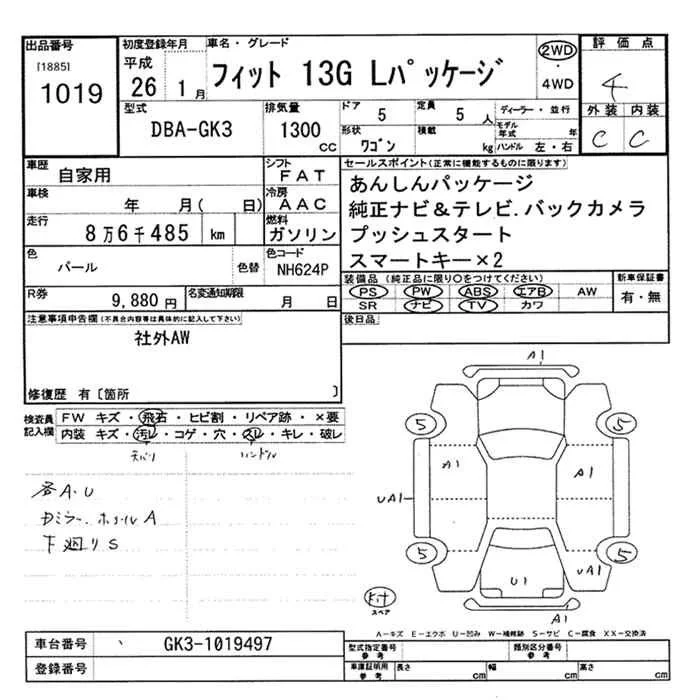 出品番号
[1885]
1019
初度登録年月
平成
26 1月
車名・グレード
フィット 13G Lパッケージ
2WD
・
4WD
評価点
4
外装 内装
C C
型式
DBA-GK3
排気量
1300 CC
ドア 5
定員 5 人
形状 ワゴン
積載 kg
ディーラー・並行
モデル年式 年
ハンドル 左・右
車歴
自家用
シフト
FAT
車検
年 月( 日)
冷房
AAC
走行
8万6千485 km
燃料
ガソリン
色
パール
色替
色コード
NH624P
R券
9,880 円
名変通知期限
月 日
セールスポイント(正常に機能するものに限ります)
あんしんパッケージ
純正ナビ&テレビ.バックカメラ
プッシュスタート
スマートキー×2
装備品(純正品に限り○をつけてください)
PS PW ABS エアB AW
SR ナビ TV カワ
新車保証書
有・無
後日品
注意事項申告欄(不具合内容等は具体的に記入して下さい)
社外AW
修復歴 有〔箇所 〕
検査員記入欄
FW キズ・飛石・ヒビ割・リペア跡・×要
内装 キズ・汚レ・コゲ・穴・スレ・キレ・破レ
天バリ ハンドル
各A.U
Dミラー.ホイルA
下廻りS
A1
5 5
A1 A1
UA1
5 5
U1 UA1
Kit
スペア
A1
A-キズ E-エクボ U-凹み W-補修跡 S-サビ C-腐食 XX-交換済
車台番号
GK3-1019497
登録番号
型式指定番号
参考
類別区分番号
参考
車庫証明用
参考
長さ cm 幅 cm 高さ cm